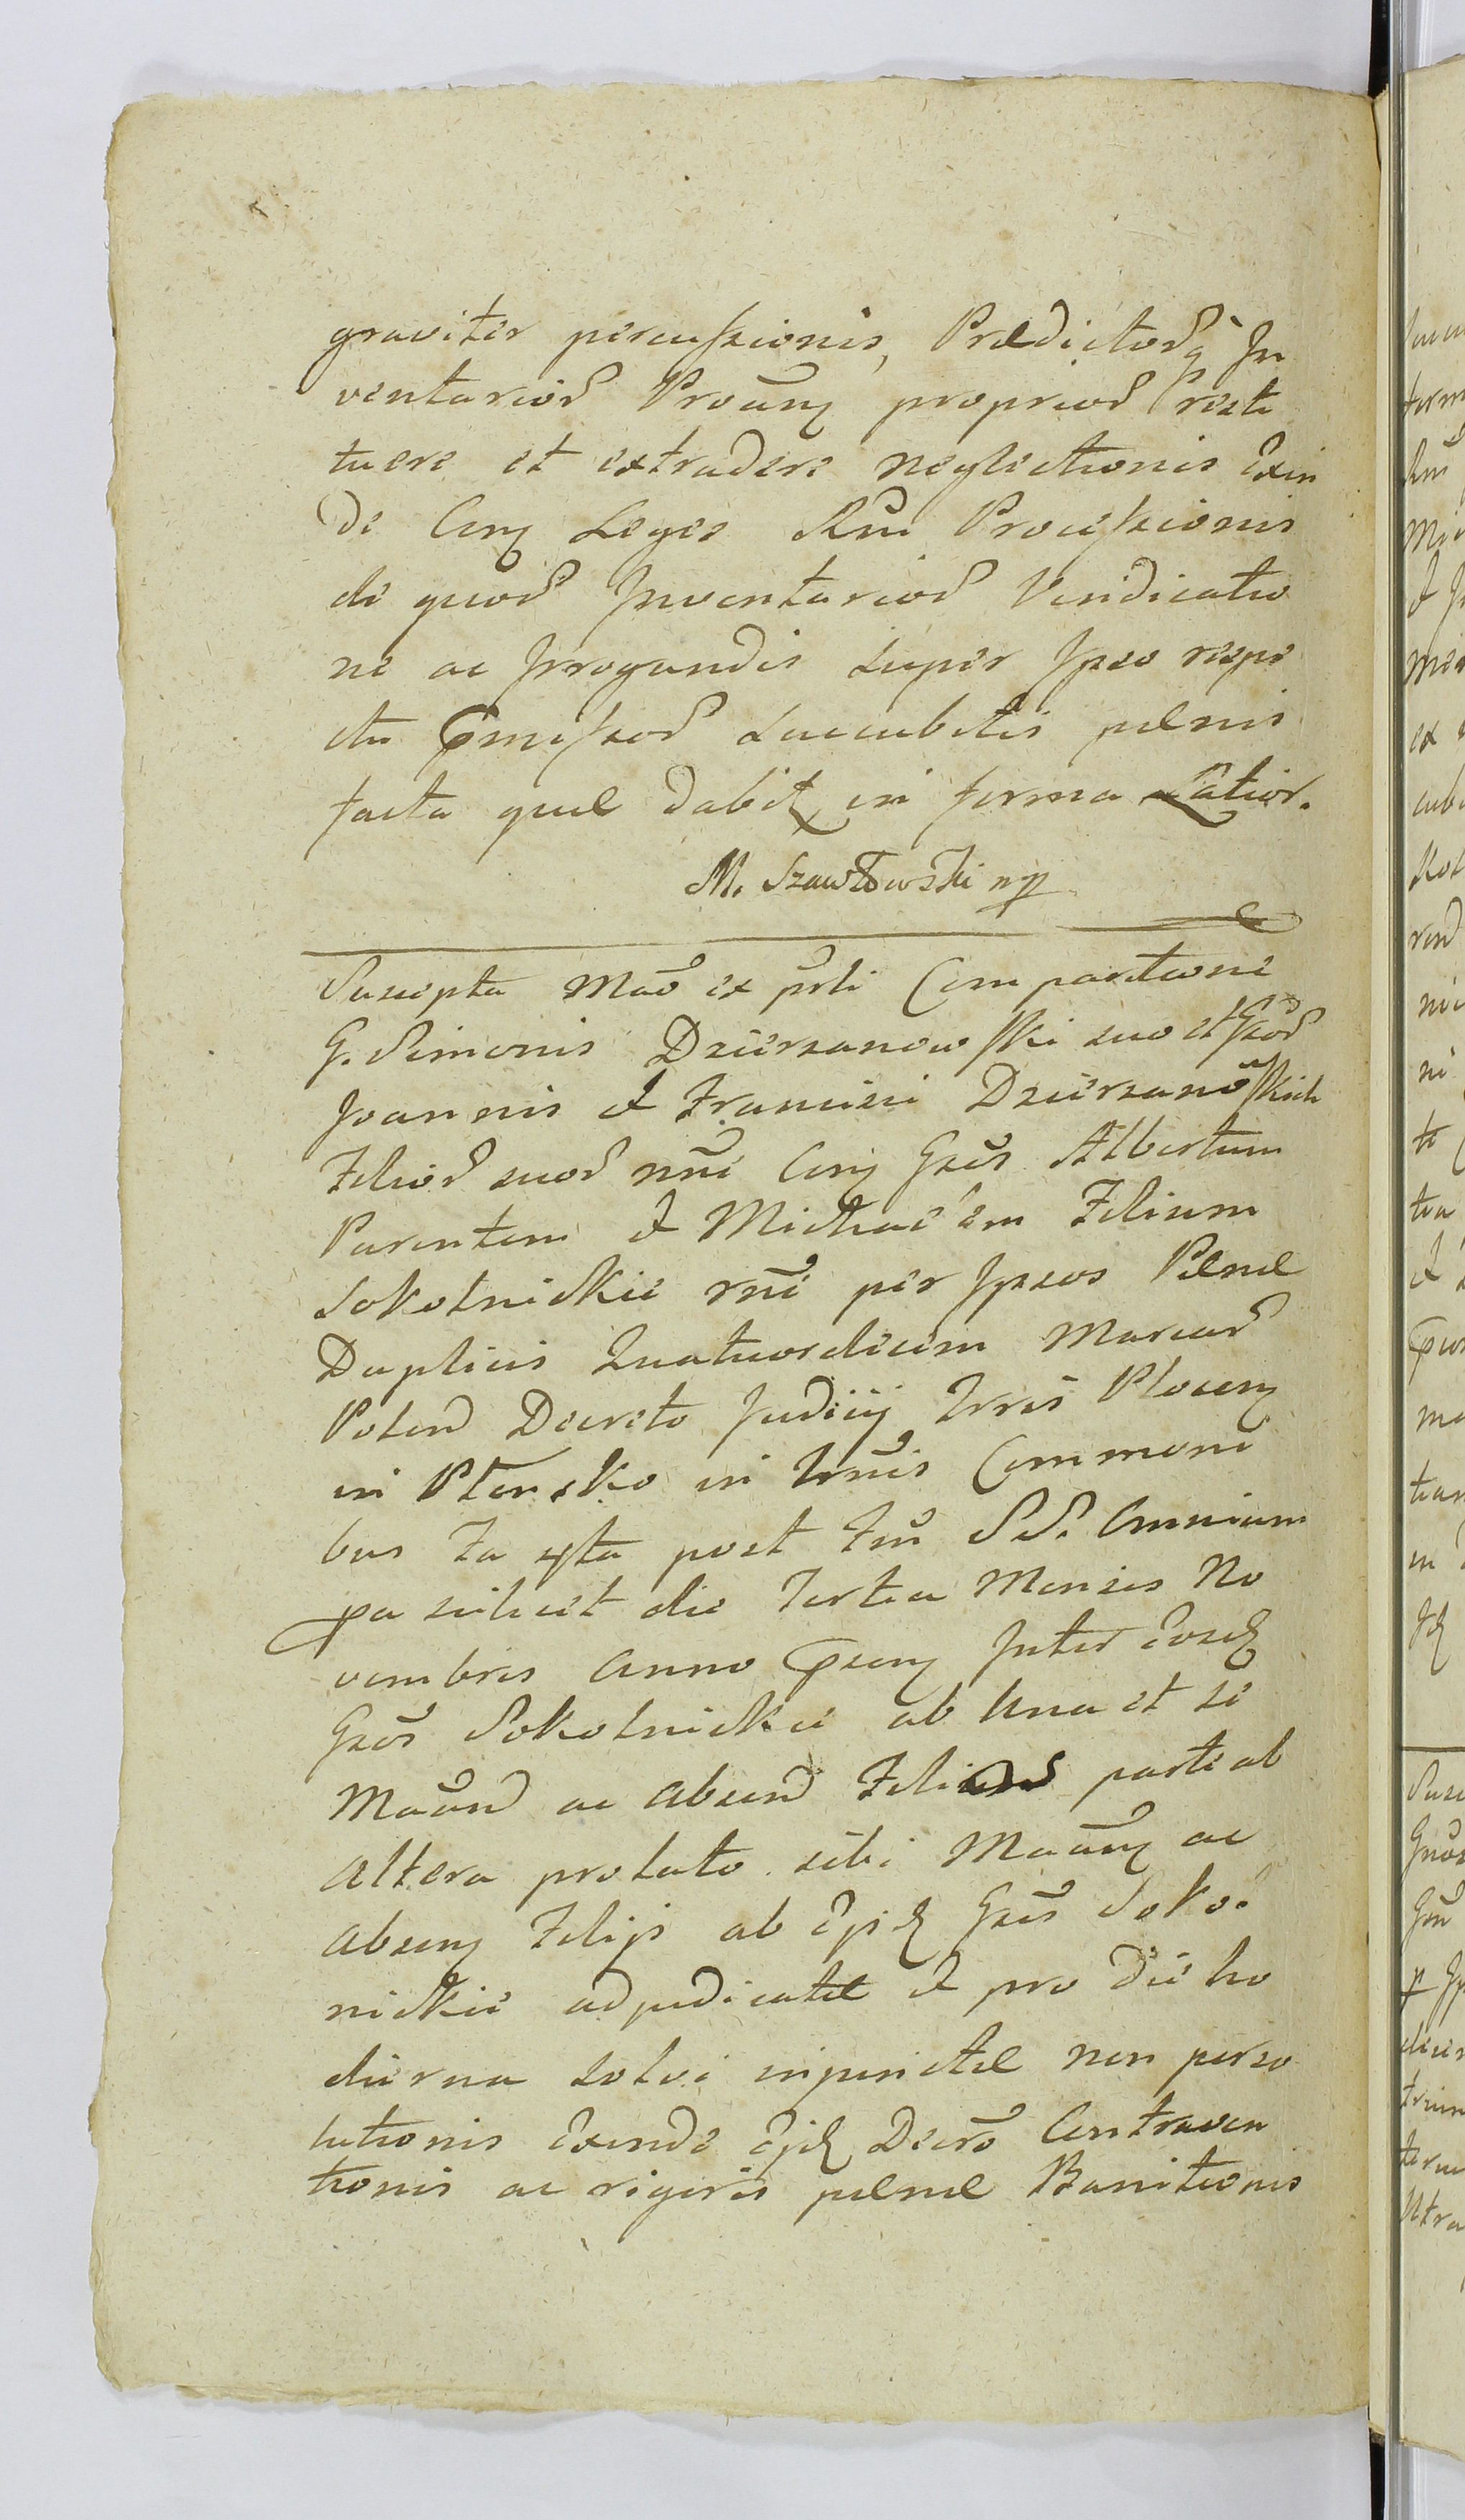 graviter percussionis, Praedictorq In
ventarior Proãnq proprior resti
tuere et extradere neglectionis Exin
de Cinq Leges Rni Processionis
de quor Inventarior Vendicatio
ne ac Irrogandis super Ipso respe
ctu Pmissor succubitis paenis
facta quae dabit in forma Lãtior.
M. Szawłowski mp
Suscepta Mão ex pñti Comparitione
G. Simonis Dzierzanowski suo et Gsor
Joannis et Francisci Dzierzanowskich
Filior suor nñe Cinq Gsos Albertum
Parentem et Michaëlem Filium
Sokolnickie rñe per Ipsos Paenae
Duplicis Quatuordecim Marcar
Polend Decreto Judicij Trris Plocenq
in Płonsko in Trmis Commoni
bus Fa 4ta post Fm SS. Omnium
pa scilicet die Tertia Mensis No
vembris Anno Psenq Inter Eosdq
Gsos Sokolnickie ab Una et se
Mãand ac absend Filios parte ab
altera prolato sibi Mãanq ac
absenq Filijs ab Ijsdq Gsis Soko:
nickie adjudicatae et pro die ho
dierna solvi injunctae non perso
lutionis Exinde Ejdq Decro Contraven
tionis ac rigoris paenae Banitionis